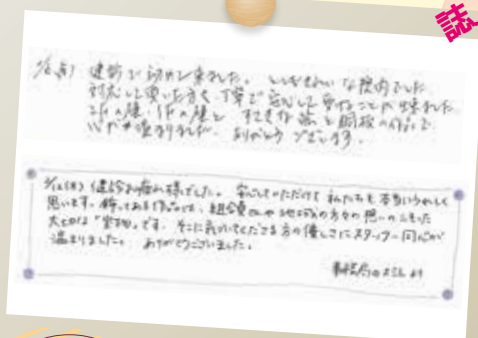 誌
健診で初めて来ました。とてもきれいな院内でした
対応して頂いた方も丁寧で安心して受けることが出来ました
心が温まりました。ありがとうございます。
健診お疲れ様でした。安心していただけて私たちも本当にうれしく
思います。飾ってある作品は、組合員さんや地域の方々の思いのこもった
大切な「宝物」です。そこに気付いてくださる方の優しさにスタッフ一同心が
温まりました。ありがとうございました。
事務局の